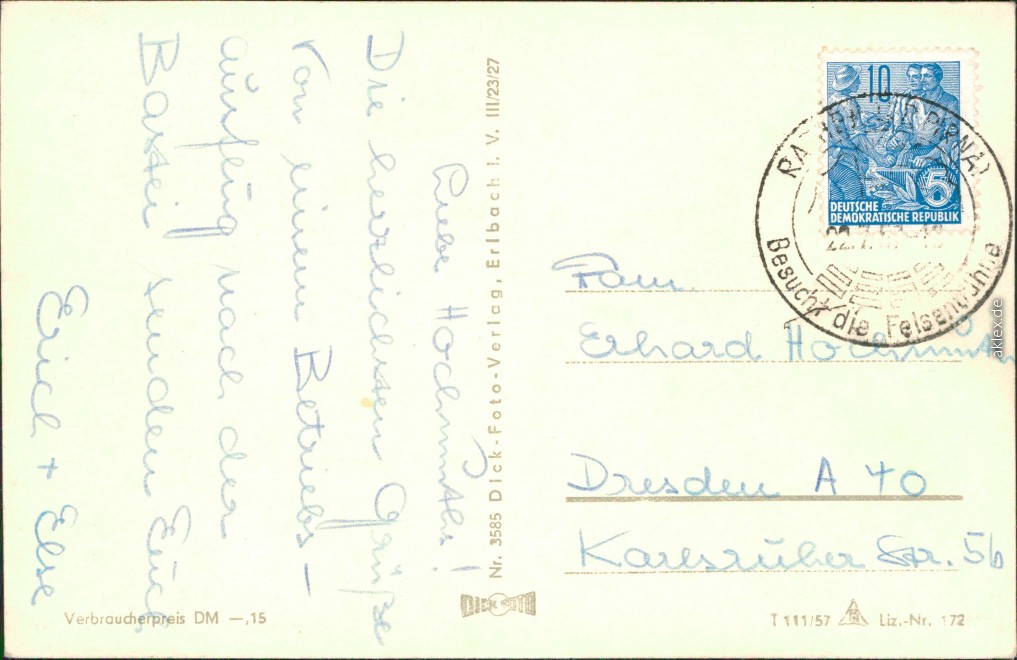 Liebe Hochmuths!
Die herzlichsten Grüße
von einem Betriebs-
ausflug nach der
Bastei senden Euch
Erich + Else
Verbraucherpreis DM —,15
Nr. 3585 Dick-Foto-Verlag, Erlbach i. V. III/23/27
DICK FOTO
10
5
DEUTSCHE
DEMOKRATISCHE REPUBLIK
PIRNA)
22.7.57
Besucht die Felsenbühne
Fam.
Erhard Hochmuth
Dresden A 40
Karlsruher Str. 56
T 111/57 Liz.-Nr. 172
aklex.de